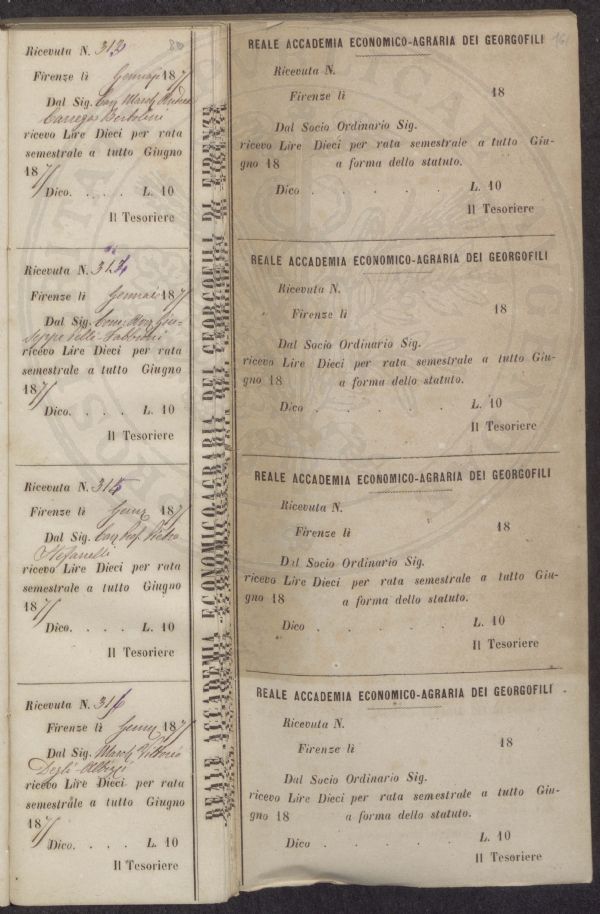 80
Ricevuta N. 313
Firenze lì Gennajo 1871
Dal Sig. Cav March
Carrega Bertolini
ricevo Lire Dieci per rata
semestrale a tutto Giugno
1871
Dico. . . . . L. 10
Il Tesoriere
Ricevuta N. 314
Firenze lì Gennai 1871
Dal Sig. Giu-
seppe
ricevo Lire Dieci per rata
semestrale a tutto Giugno
1871
Dico. . . . . L. 10
Il Tesoriere
Ricevuta N. 315
Firenze lì 1871
Dal Sig. Cav Prof. Pietro
Stefanelli
ricevo Lire Dieci per rata
semestrale a tutto Giugno
1871
Dico. . . . . L. 10
Il Tesoriere
Ricevuta N. 316
Firenze lì 1871
Dal Sig. March Vittorio
Degli-Albizi
ricevo Lire Dieci per rata
semestrale a tutto Giugno
1871
Dico. . . . . L. 10
Il Tesoriere
REALE ACCADEMIA ECONOMICO-AGRARIA DEI GEORGOFILI DI FIRENZE
161
REALE ACCADEMIA ECONOMICO-AGRARIA DEI GEORGOFILI
Ricevuta N.
Firenze lì 18
Dal Socio Ordinario Sig.
ricevo Lire Dieci per rata semestrale a tutto Giu-
gno 18 a forma dello statuto.
Dico . . . . . L. 10
Il Tesoriere
REALE ACCADEMIA ECONOMICO-AGRARIA DEI GEORGOFILI
Ricevuta N.
Firenze lì 18
Dal Socio Ordinario Sig.
ricevo Lire Dieci per rata semestrale a tutto Giu-
gno 18 a forma dello statuto.
Dico . . . . . L. 10
Il Tesoriere
REALE ACCADEMIA ECONOMICO-AGRARIA DEI GEORGOFILI
Ricevuta N.
Firenze lì 18
Dal Socio Ordinario Sig.
ricevo Lire Dieci per rata semestrale a tutto Giu-
gno 18 a forma dello statuto.
Dico . . . . . L. 10
Il Tesoriere
REALE ACCADEMIA ECONOMICO-AGRARIA DEI GEORGOFILI
Ricevuta N.
Firenze lì 18
Dal Socio Ordinario Sig.
ricevo Lire Dieci per rata semestrale a tutto Giu-
gno 18 a forma dello statuto.
Dico . . . . . L. 10
Il Tesoriere